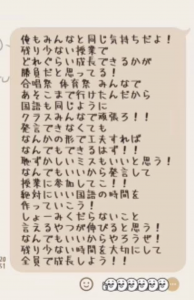 俺もみんなと同じ気持ちだよ！
残り少ない授業で
どれぐらい成長できるかが
勝負だと思ってる！
合唱祭 体育祭 みんなで
あそこまで行けたんだから
国語も同じように
クラスみんなで頑張ろ！！
発言できなくても
なんかの形で工夫すれば
なんでもできるはず！！
恥ずかしいミスもいいと思う！
なんでもいいから発言して
授業に参加してこ！！
絶対にいい国語の時間を
作っていこう！
しょーみくだらないこと
言えるやつが伸びると思う！
なんでもいいからやろうぜ！
残り少ない時間を大切にして
全員で成長しよう！！